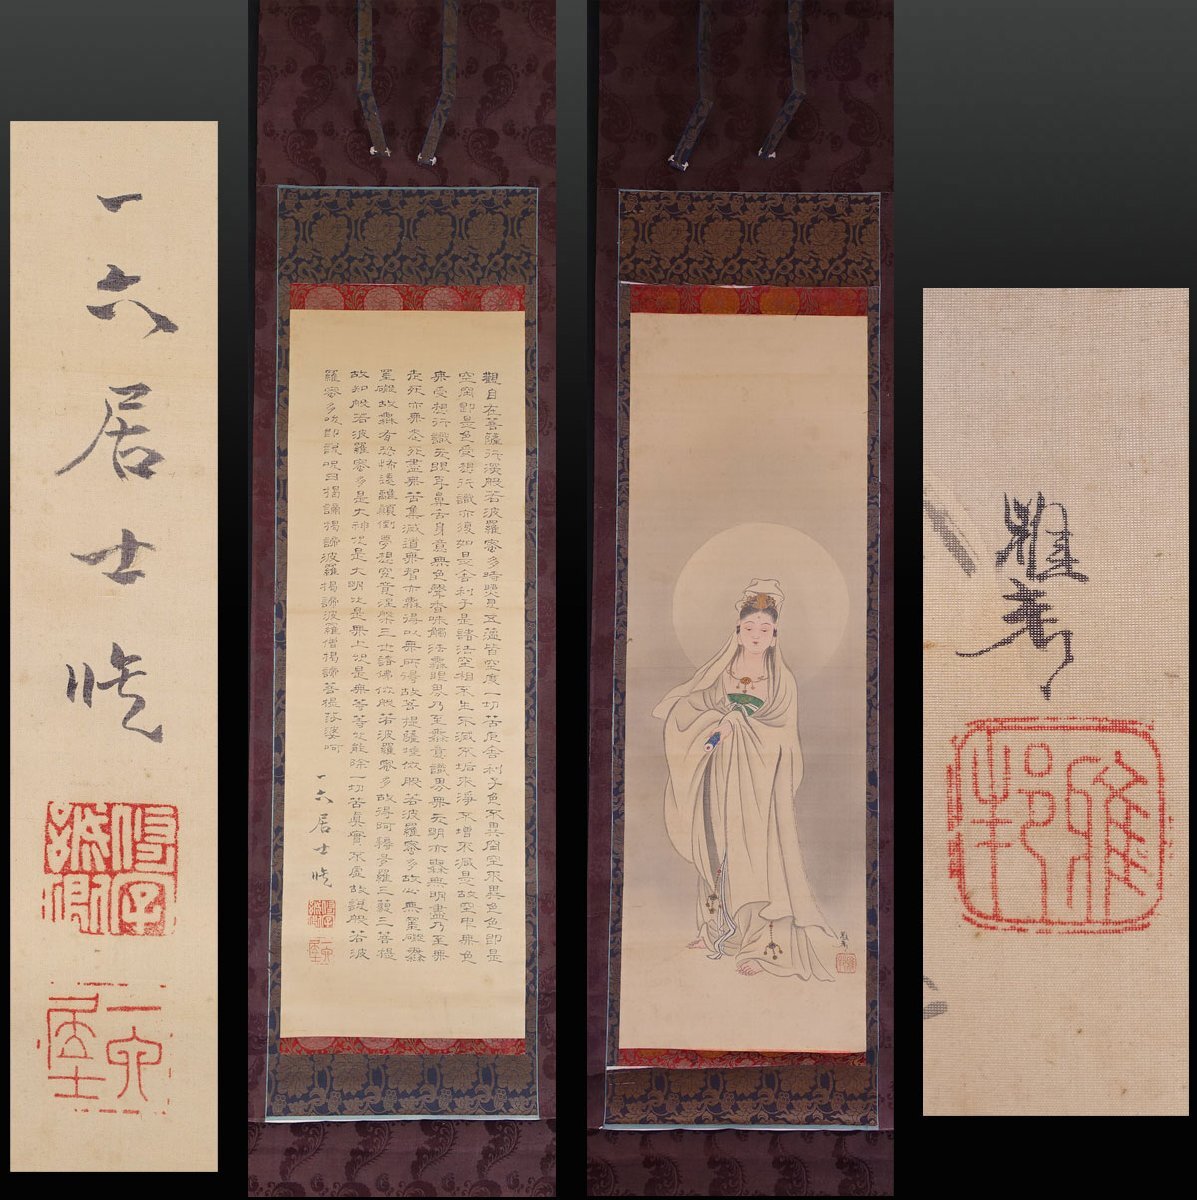 一六居士脩
脩字誠卿
一六居士
觀自在菩薩行深般若波羅蜜多時照見五蘊皆空度一切苦厄舍利子色不異空空不異色色即是
空空即是色受想行識亦復如是舍利子是諸法空相不生不滅不垢不淨不增不減是故空中無色
無受想行識无眼耳鼻舌身意無色聲香味觸法無眼界乃至無意識界無无明亦無無明盡乃至無
老死亦無老死盡無苦集滅道無智亦無得以無所得故菩提薩埵依般若波羅蜜多故心無罣礙無
罣礙故無有恐怖遠離顛倒夢想究竟涅槃三世諸佛依般若波羅蜜多故得阿耨多羅三藐三菩提
故知般若波羅蜜多是大神咒是大明咒是無上咒是無等等咒能除一切苦真實不虛故說般若波
羅蜜多咒即說咒曰揭諦揭諦波羅揭諦波羅僧揭諦菩提薩婆呵
一六居士脩
脩字誠卿
一六居士
雅邦
雅邦
雅邦
雅邦